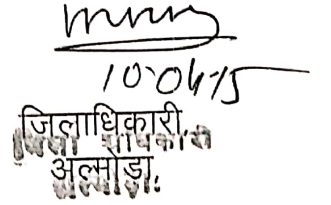 10-04-15
जिलाधिकारी,
अल्मोड़ा.